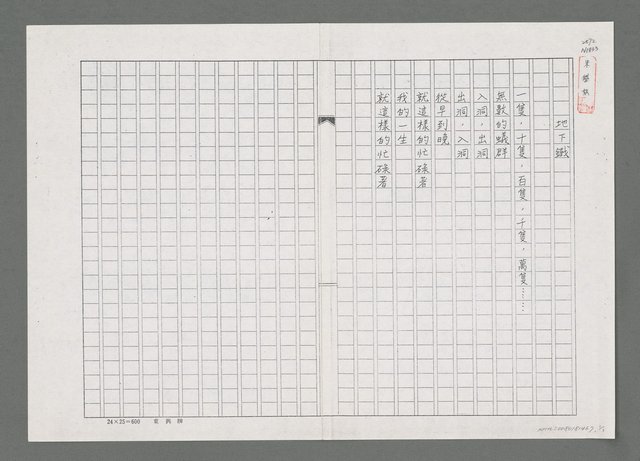 地下鐵
一隻，十隻，百隻，千隻，萬隻……
無數的蟻群
入洞，出洞
出洞，入洞
從早到晚
就這樣的忙碌著
我的一生
就這樣的忙碌著
24×25=600